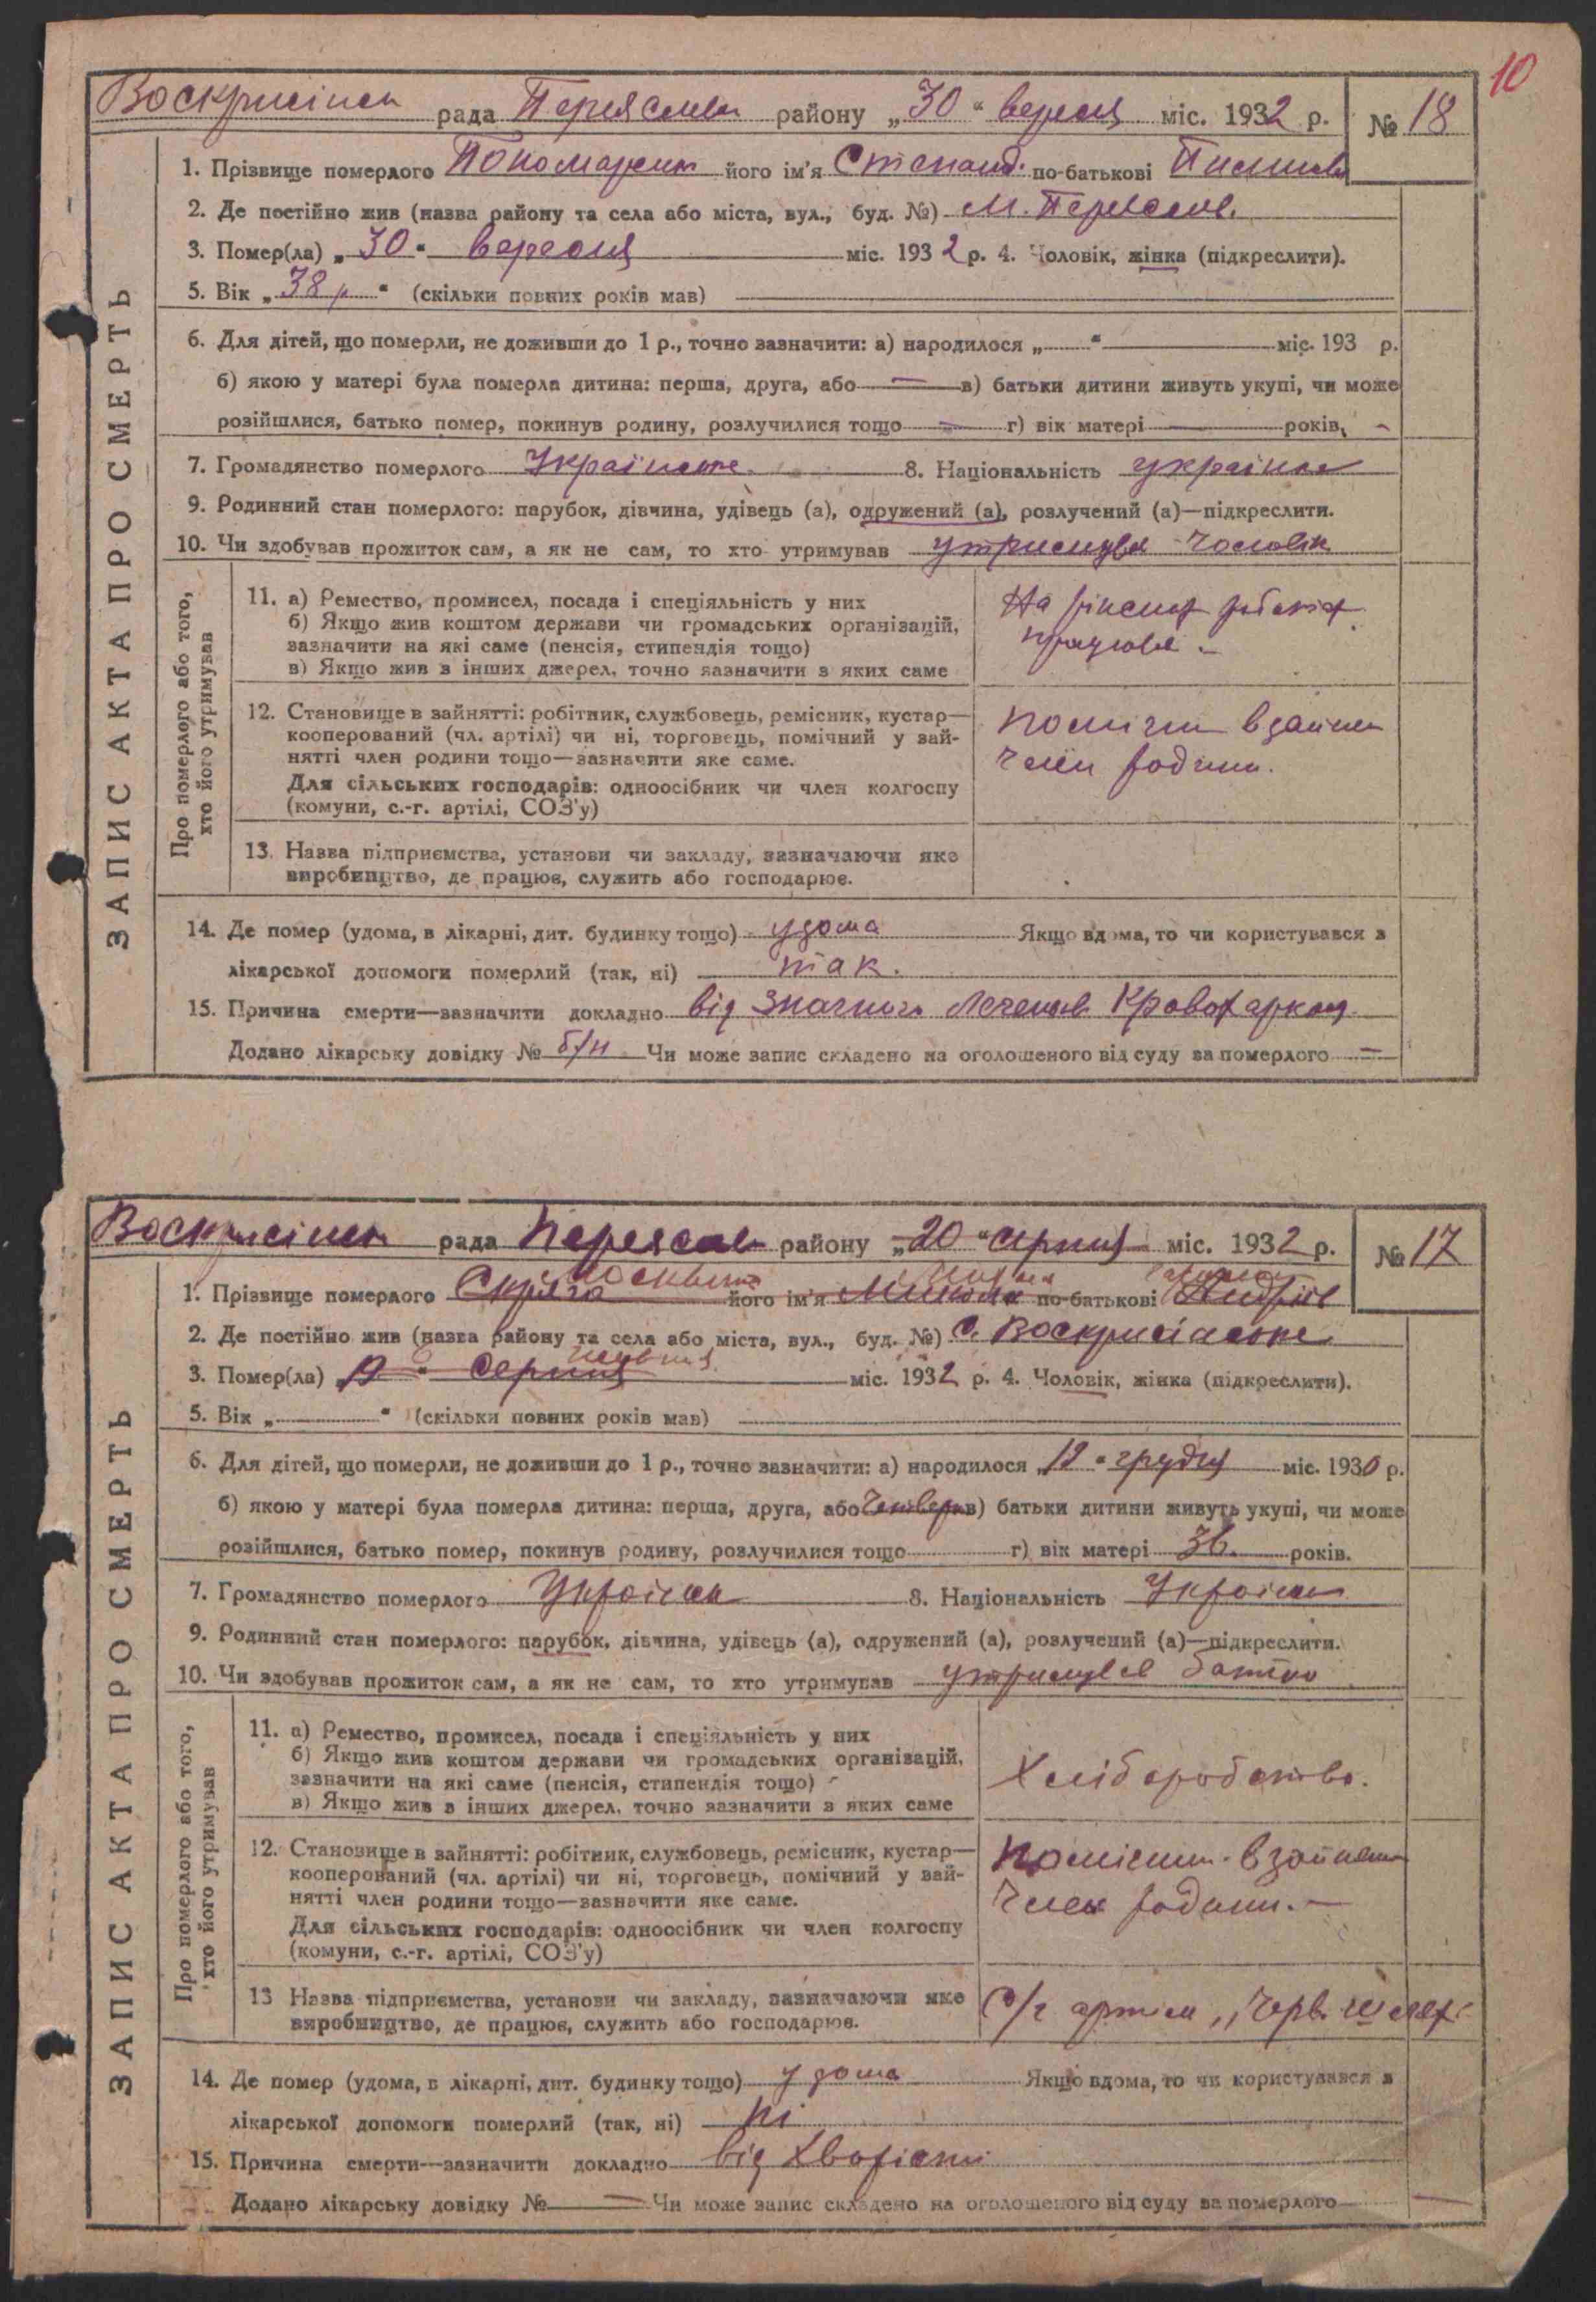 10
Воскрисінсь рада Переяслав району „30“ вересня міс. 1932 р. № 18
1. Прізвище померлого Пономаренк його ім'я Степанід. по-батькові
2. Де постійно жив (назва району та села або міста, вул., буд. №) м. Переяслов.
3. Помер(ла) „30“ вересня міс. 1932 р. 4. Чоловік, жінка (підкреслити).
5. Вік „38 р“ (скільки повних років мав)
6. Для дітей, що померли, не доживши до 1 р., точно зазначити: а) народилося „ “ міс. 193 р.
б) якою у матері була померла дитина: перша, друга, або — в) батьки дитини живуть укупі, чи може
розійшлися, батько помер, покинув родину, розлучилися тощо — г) вік матері — років. -
7. Громадянство померлого Українське. 8. Національність українка
9. Родинний стан померлого: парубок, дівчина, удівець (а), одружений (а), розлучений (а)—підкреслити.
10. Чи здобував прожиток сам, а як не сам, то хто утримував утримував чоловік
ЗАПИС АКТА ПРО СМЕРТЬ
Про померлого або того,
хто його утримував
11. а) Ремество, промисел, посада і спеціяльність у них
б) Якщо жив коштом держави чи громадських організацій,
зазначити на які саме (пенсія, стипендія тощо)
в) Якщо жив з інших джерел, точно зазначити з яких саме
На
працював -
12. Становище в зайнятті: робітник, службовець, ремісник, кустар—
кооперований (чл. артілі) чи ні, торговець, помічний у зай-
нятті член родини тощо—зазначити яке саме.
Для сільських господарів: одноосібник чи член колгоспу
(комуни, с.-г. артілі, СОЗ'у)
помічн в займан
член родини.
13. Назва підприємства, установи чи закладу, зазначаючи яке
виробництво, де працює, служить або господарює.
14. Де помер (удома, в лікарні, дит. будинку тощо) удома Якщо вдома, то чи користувався з
лікарської допомоги померлий (так, ні) так.
15. Причина смерти—зазначити докладно від значного Легенев Кровохаркан
Додано лікарську довідку № б/н Чи може запис складено на оголошеного від суду за померлого —
Воскрисінсь рада Переяслав району „20“ серпня міс. 1932 р. № 17
1. Прізвище померлого Скряга його ім'я Микола по-батькові Андріїв
2. Де постійно жив (назва району та села або міста, вул., буд. №) С. Воскрисінське
3. Помер(ла) „19“ Серпня міс. 1932 р. 4. Чоловік, жінка (підкреслити).
5. Вік „ “ (скільки повних років мав)
6. Для дітей, що померли, не доживши до 1 р., точно зазначити: а) народилося „12“ грудня міс. 1930 р.
б) якою у матері була померла дитина: перша, друга, або Четверта в) батьки дитини живуть укупі, чи може
розійшлися, батько помер, покинув родину, розлучилися тощо г) вік матері 36. років.
7. Громадянство померлого Україсн 8. Національність Україсн
9. Родинний стан померлого: парубок, дівчина, удівець (а), одружений (а), розлучений (а)—підкреслити.
10. Чи здобував прожиток сам, а як не сам, то хто утримував утримував батько
ЗАПИС АКТА ПРО СМЕРТЬ
Про померлого або того,
хто його утримував
11. а) Ремество, промисел, посада і спеціяльність у них
б) Якщо жив коштом держави чи громадських організацій,
зазначити на які саме (пенсія, стипендія тощо)
в) Якщо жив з інших джерел, точно зазначити з яких саме
Хліборобство.
12. Становище в зайнятті: робітник, службовець, ремісник, кустар—
кооперований (чл. артілі) чи ні, торговець, помічний у зай-
нятті член родини тощо—зазначити яке саме.
Для сільських господарів: одноосібник чи член колгоспу
(комуни, с.-г. артілі, СОЗ'у)
помісни в займан
Член родини. —
13 Назва підприємства, установи чи закладу, зазначаючи яке
виробництво, де працює, служить або господарює.
С/г артіль „Черв. Шлях“
14. Де помер (удома, в лікарні, дит. будинку тощо) удома Якщо вдома, то чи користувався з
лікарської допомоги померлий (так, ні) ні
15. Причина смерти—зазначити докладно від Хворісти
Додано лікарську довідку № — Чи може запис складено на оголошеного від суду за померлого —